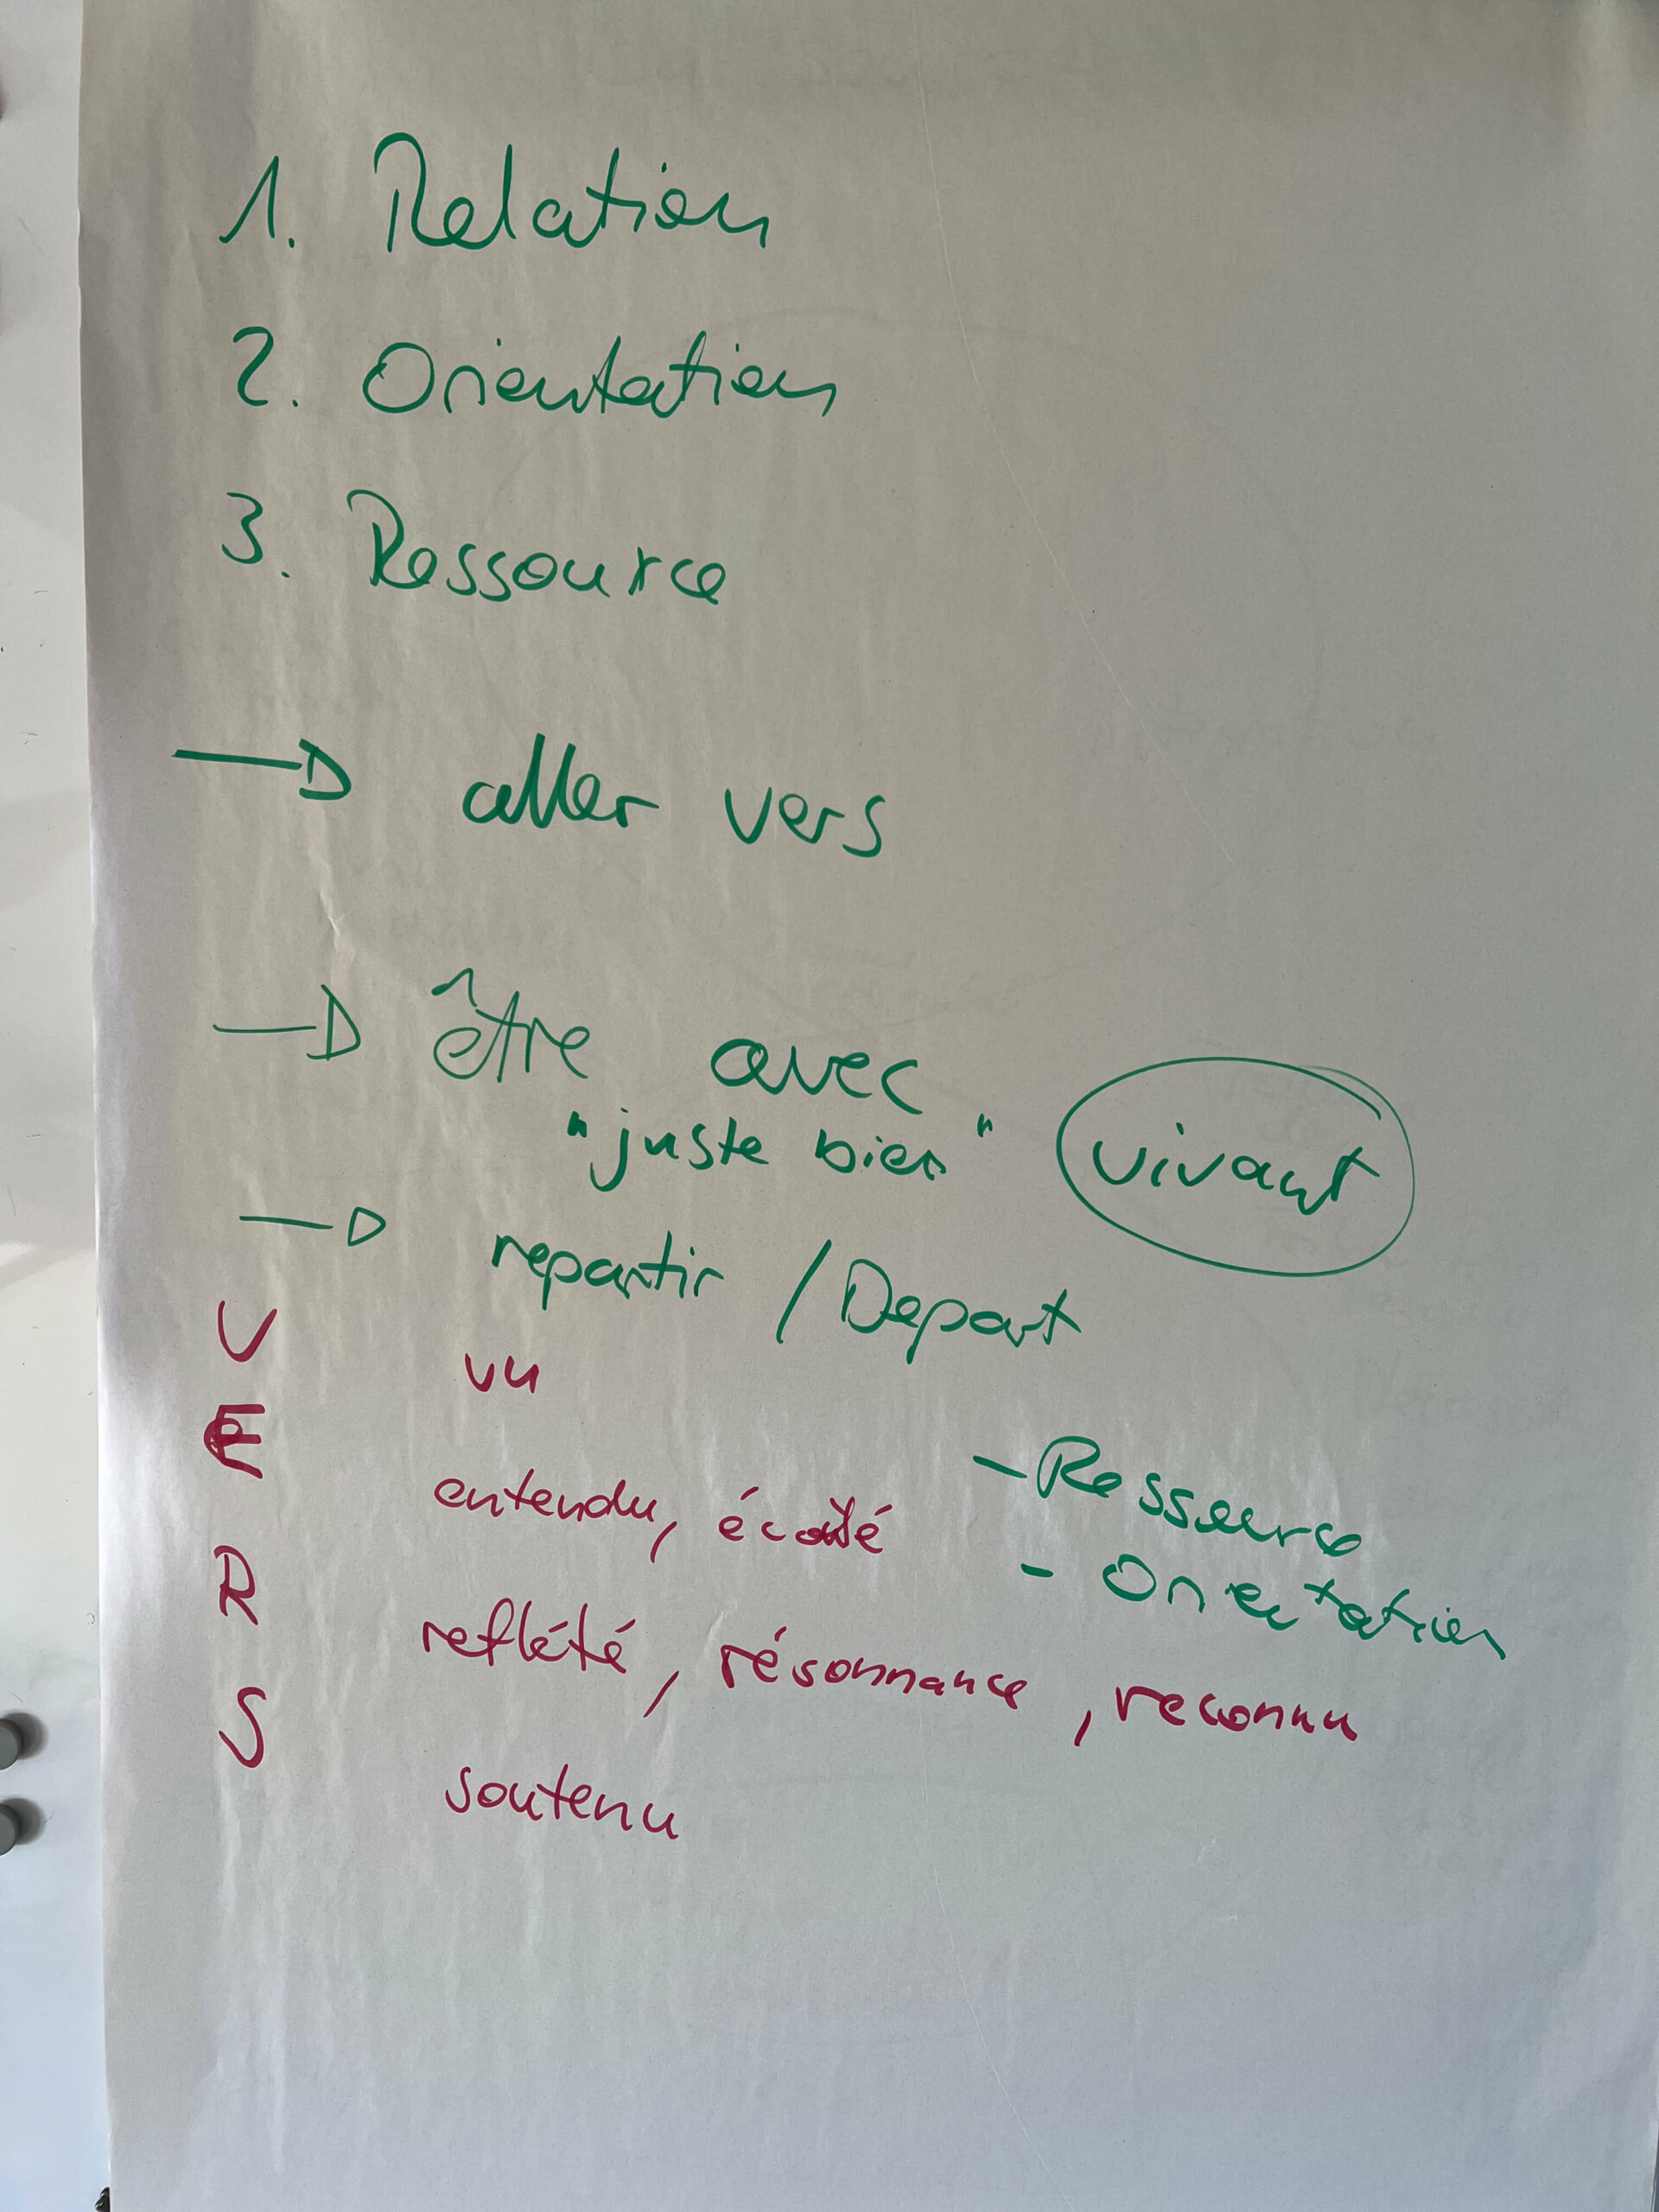 1. Relation
2. Orientation
3. Ressource
→ aller vers
→ être avec
"juste bien" vivant
→ repartir / Depart
V vu
E entendu, écouté
- Ressource
- Orientation
R reflété, résonnance, reconnu
S soutenu